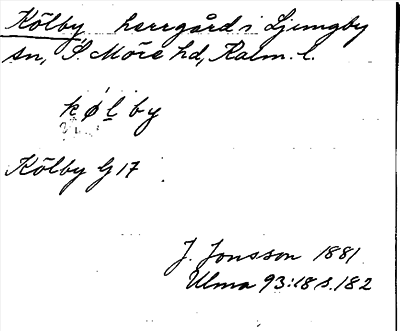 Kölby herrgård i Ljungby
sn, S. Möre hd, Kalm. l.
kølby
Kölby G 17
J. Jonsson 1881
Ulma 93:18 s. 182